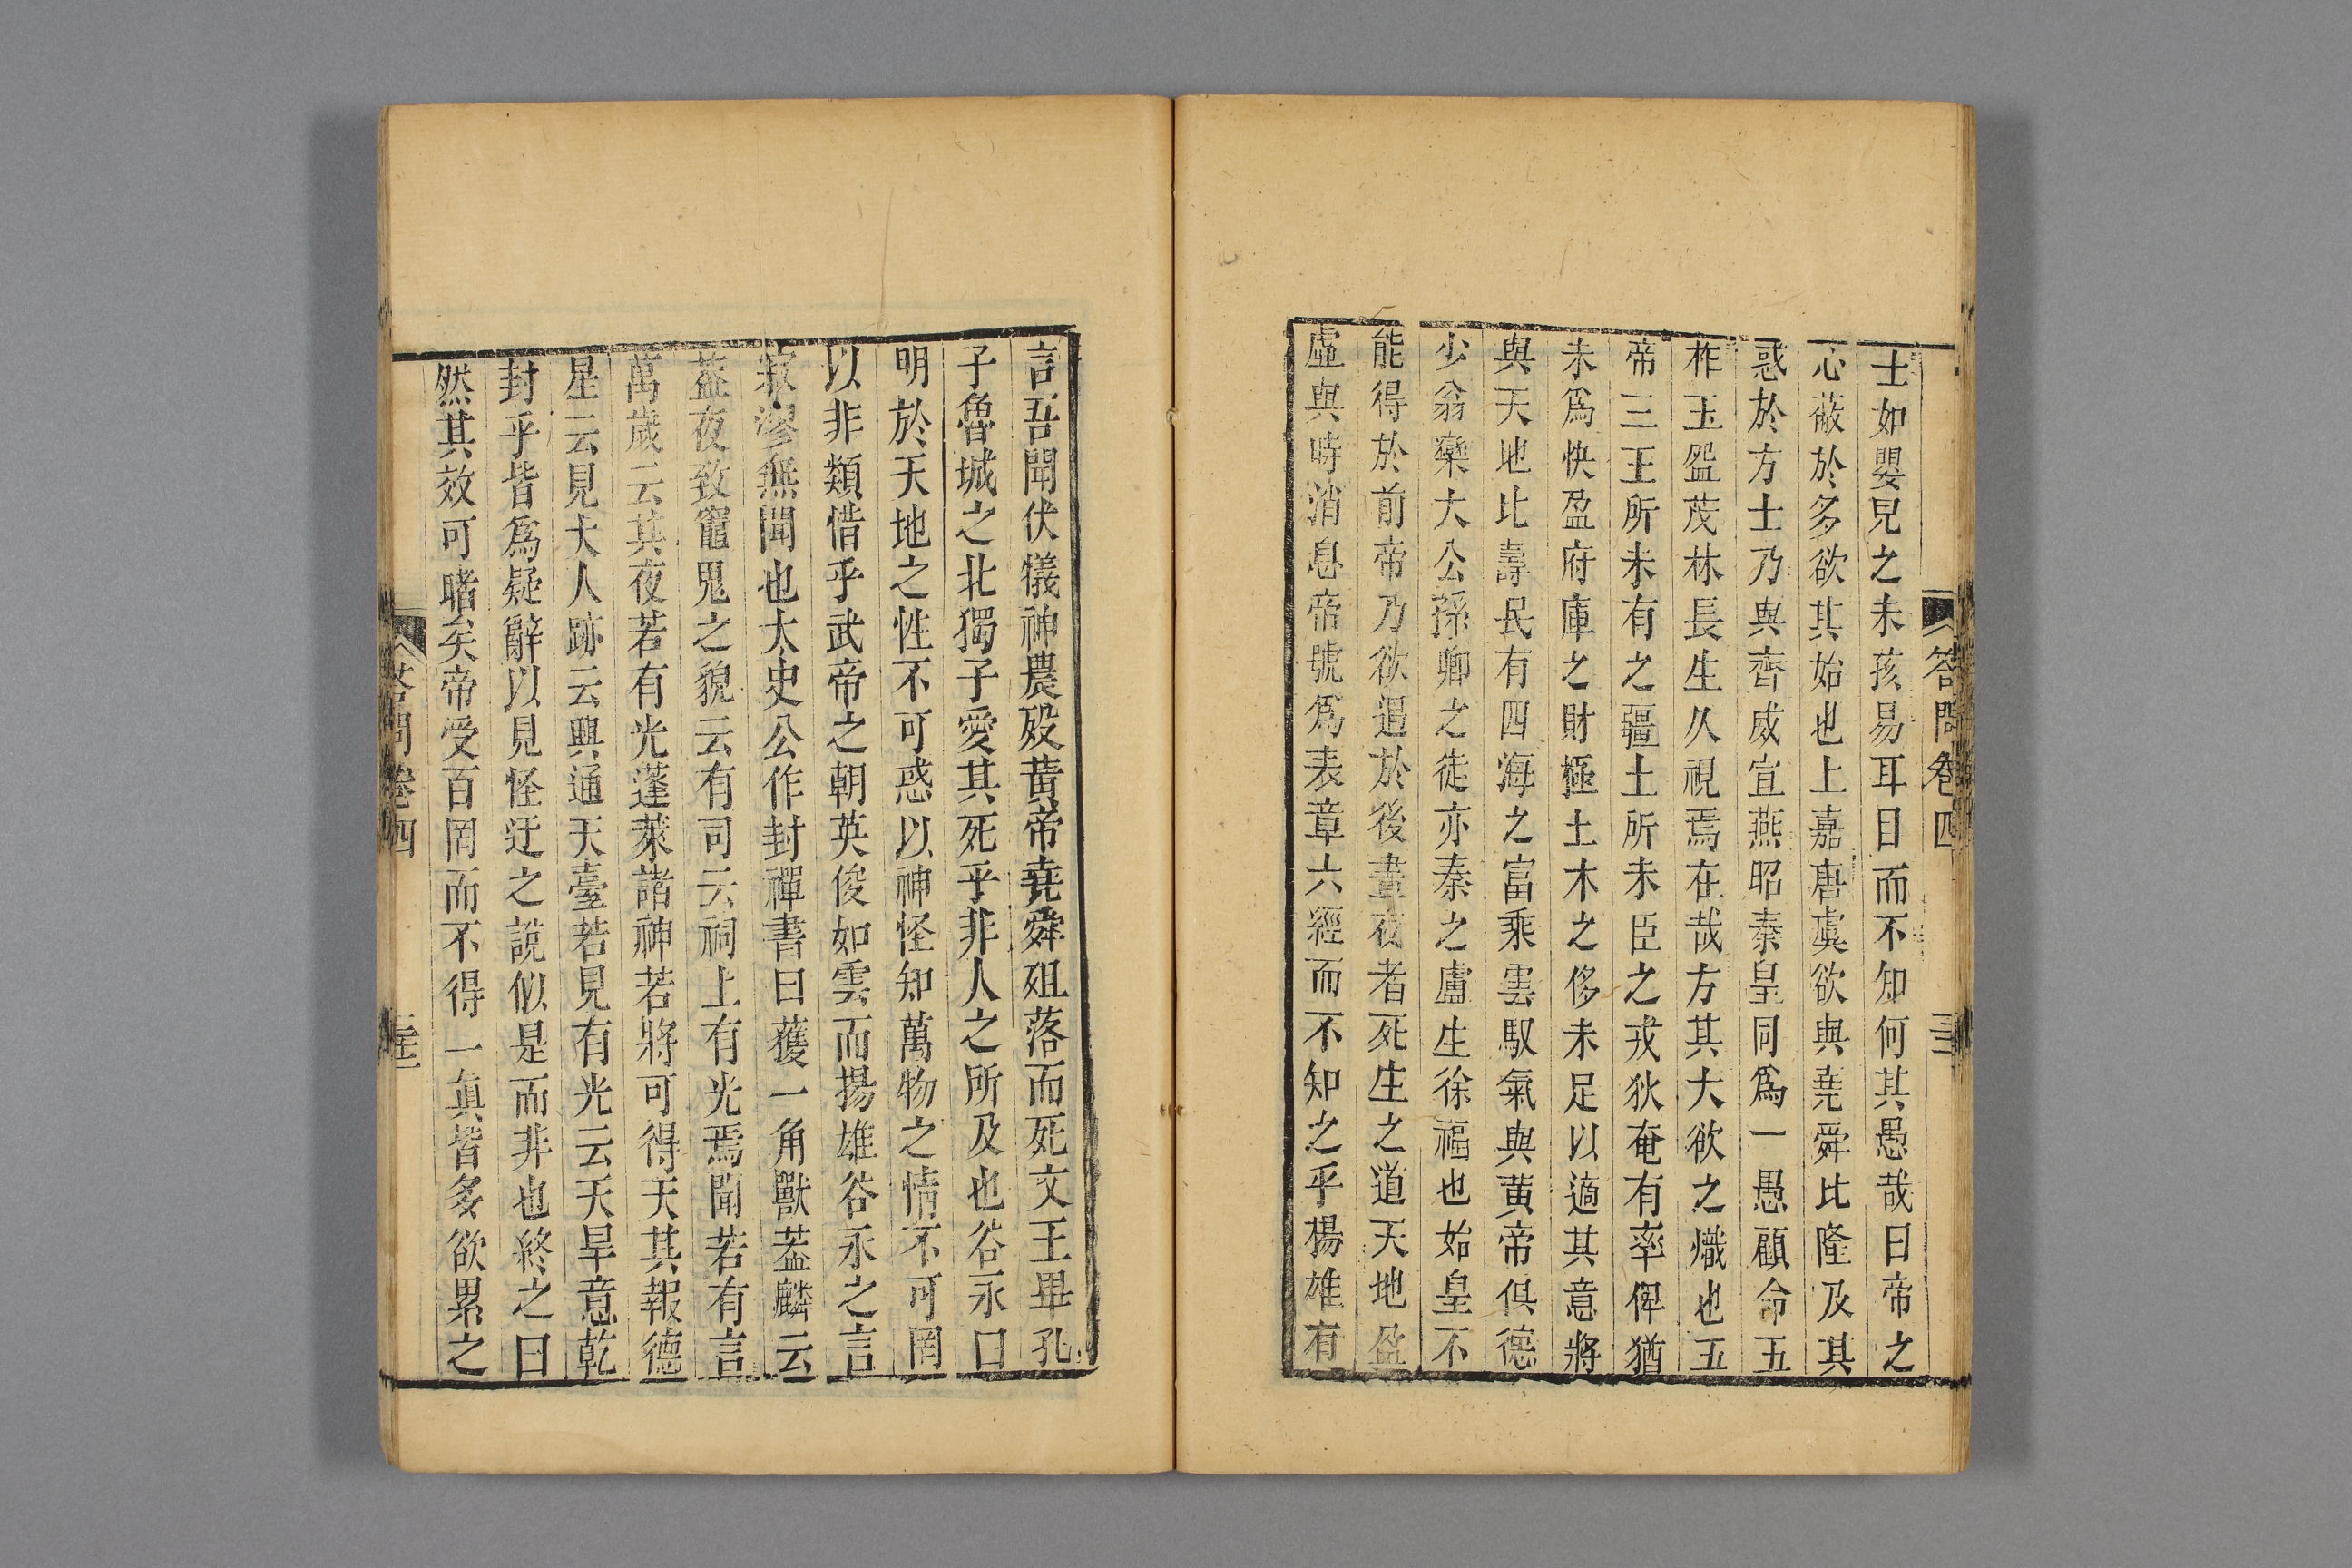 士如嬰兒之未孩易耳目而不知何其愚哉曰帝之
心蔽於多欲其始也上嘉唐虞欲與堯舜比隆及其
惑於方士乃與齊威宣燕昭秦皇同爲一愚顧命五
柞玉盌茂林長生久視焉在哉方其大欲之熾也五
帝三王所未有之疆土所未臣之戎狄奄有率俾猶
未爲快盈府庫之財極土木之侈未足以適其意將
與天地比壽民有四海之富乘雲馭氣與黄帝俱德
少翁欒大公孫卿之徒亦秦之盧生徐福也始皇不
能得於前帝乃欲過於後晝夜者死生之道天地盈
虛與時消息帝號爲表章六經而不知之乎楊雄有
答問卷四
言吾聞伏犧神農殁黄帝堯舜殂落而死文王畢孔
子魯城之北獨子愛其死乎非人之所及也谷永曰
明於天地之性不可惑以神怪知萬物之情不可罔
以非類惜乎武帝之朝英俊如雲而揚雄谷永之言
寂漻無聞也太史公作封禪書曰獲一角獸葢麟云
葢夜致竈鬼之貌云有司云祠上有光焉聞若有言
萬歲云其夜若有光蓬萊諸神若將可得天其報德
星云見大人跡云興通天臺若見有光云天旱意乾
封乎皆爲疑辭以見怪迂之說似是而非也終之曰
然其效可睹矣帝受百罔而不得一眞皆多欲累之
答問卷四